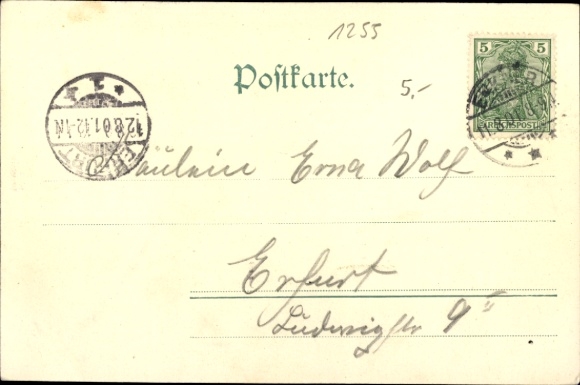 1255
Postkarte.
5,-
5 5
REICHSPOST
12.8.01.12-1N
Fräulein Erna Wolf
Erfurt
Ludwigstr 9 II